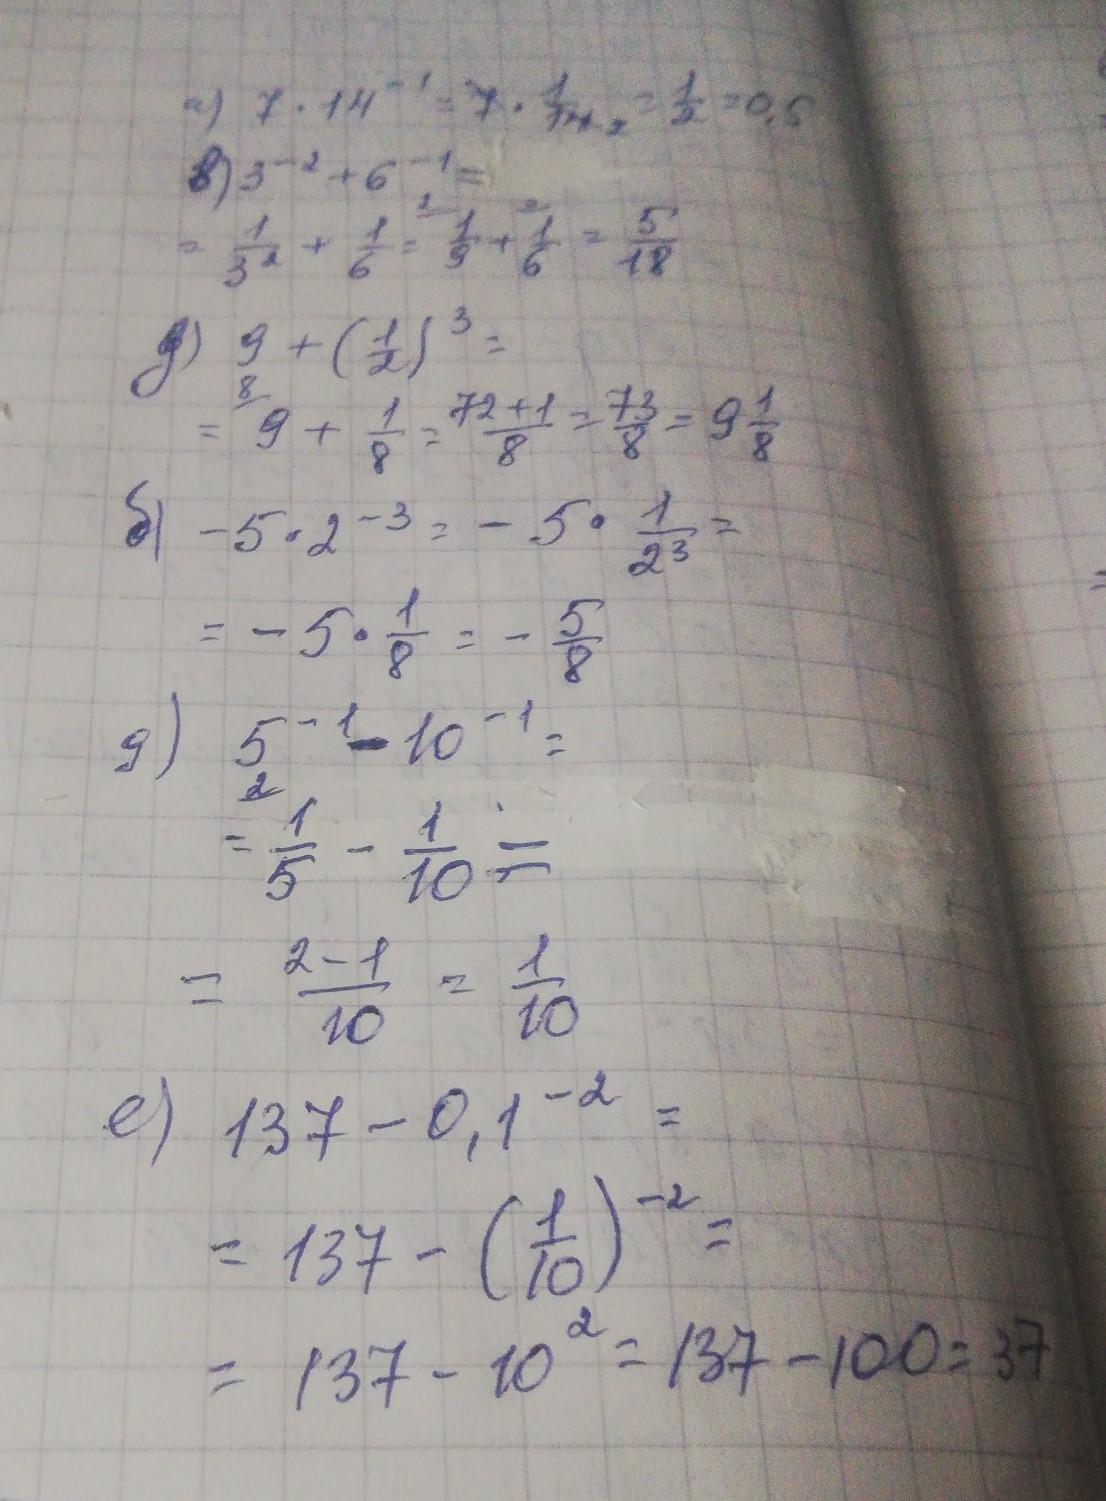 а) 7 · 14⁻¹ = 7 · 1/14 ₂ = 1/2 = 0,5
в) 3⁻² + 6⁻¹ =
= 1/3² + 1/6 = 1/9 + 1/6 = 5/18
д) 9 + (1/2)³ =
= 9 + 1/8 = 72+1/8 = 73/8 = 9 1/8
б) -5 · 2⁻³ = - 5 · 1/2³ =
= - 5 · 1/8 = - 5/8
g) 5⁻¹ - 10⁻¹ =
= 1/5 - 1/10 =
= 2-1/10 = 1/10
е) 137 - 0,1⁻² =
= 137 - (1/10)⁻² =
= 137 - 10² = 137 - 100 = 37